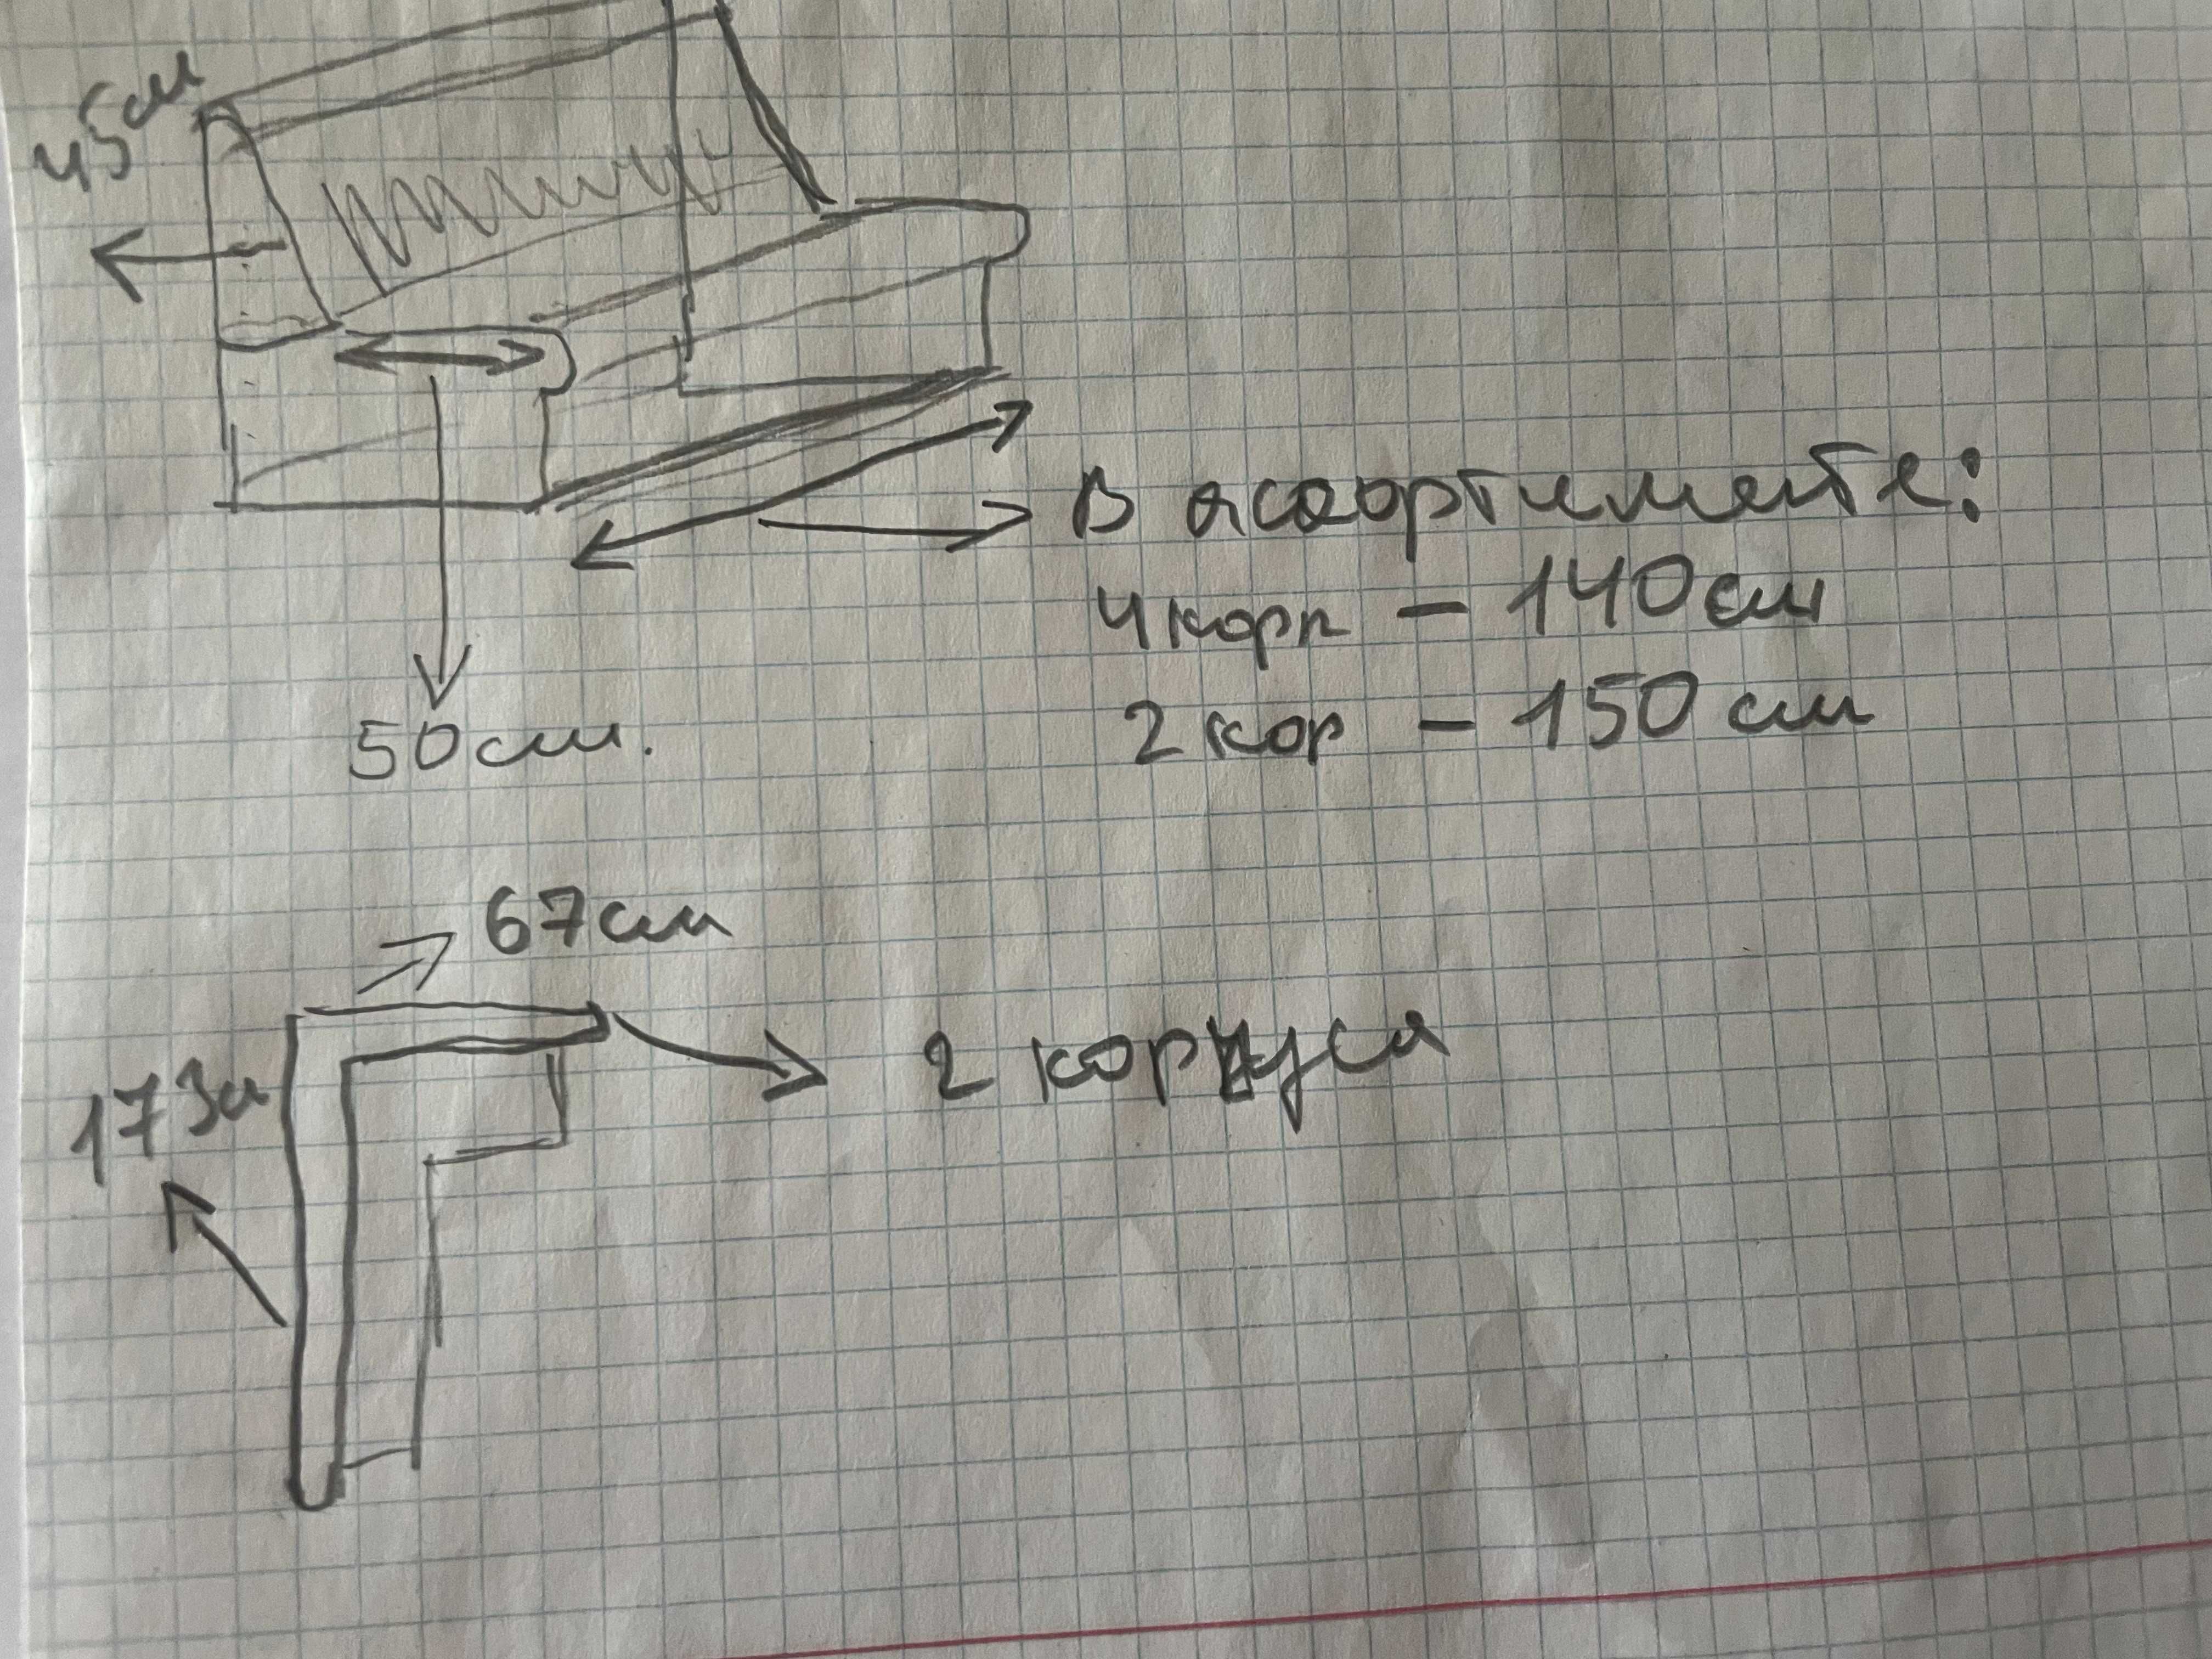 45см
В асортименте:
4 корп – 140см
2 кор – 150 см
50см.
67см
173см
2 корпуса